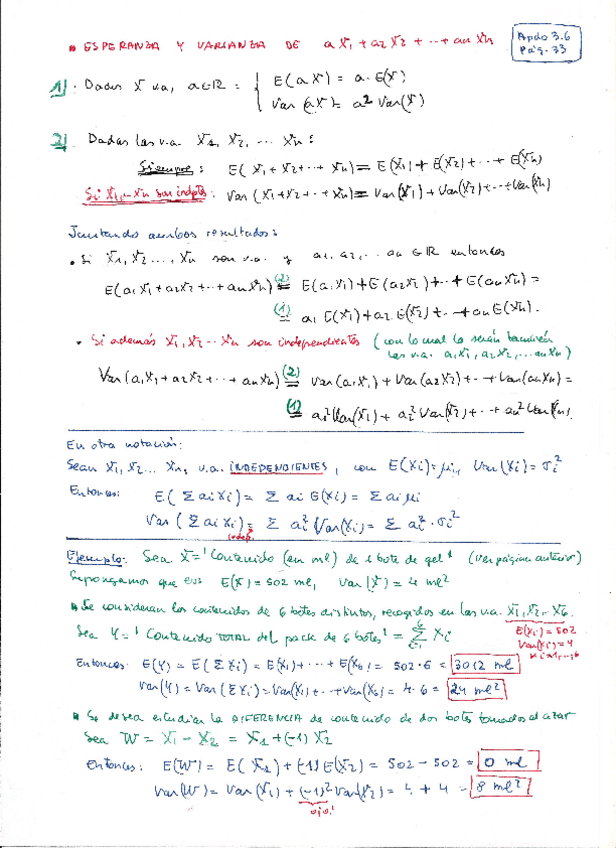 • ESPERANZA Y VARIANZA DE a X₁ + a₂ X₂ + ··· + an Xn
Apdo 3.6
Pág. 33
1) · Dados X va, a∈ℝ : { E(aX) = a·E(X)
Var(aX) = a² Var(X)
2) Dadas las v.a. X₁, X₂, ... Xn :
Siempre : E( X₁+X₂+··+ Xn) = E(X₁) + E(X₂) + ··· + E(Xn)
Si X₁,...Xn son indptes : Var(X₁+X₂+··+ Xn) = Var(X₁) + Var(X₂)+··+Var(Xn)
Juntando ambos resultados :
• Si X₁, X₂ ..., Xn son v.a. y a₁, a₂, ... an ∈ ℝ entonces
E(a₁X₁ + a₂X₂ +··+ anXn) (2)= E(a₁X₁) + E(a₂X₂) + ··+ E(anXn) =
(1)= a₁ E(X₁) + a₂ E(X₂) +··+ an E(Xn).
• Si además X₁, X₂ ··· Xn son independientes (con lo cual lo serán también
las v.a. a₁X₁, a₂X₂, ... anXn)
Var(a₁X₁ + a₂X₂ +··+ anXn) (2)= Var(a₁X₁) + Var(a₂X₂) + ··+ Var(anXn) =
(1)= a₁² Var(X₁) + a₂² Var(X₂) + ··+ an² Var(Xn)
En otra notación:
Sean X₁, X₂ ... Xn, v.a. INDEPENDIENTES, con E(Xi) = μi, Var(Xi) = σi²
Entonces: E( Σ ai Xi) = Σ ai E(Xi) = Σ ai μi
Var( Σ ai Xi) = Σ ai² Var(Xi) = Σ ai² · σi²
indep.
Ejemplo: Sea X = 'Contenido (en ml) de 1 bote de gel' (ver página anterior)
Supongamos que es: E(X) = 502 ml, Var(X) = 4 ml²
• Se consideran los contenidos de 6 botes distintos, recogidos en las v.a. X₁, X₂... X₆.
E(Xi) = 502
Var(Xi) = 4
∀ i=1,...,6
Sea Y = 'Contenido TOTAL del pack de 6 botes' = Σ⁶ᵢ₌₁ Xi
Entonces: E(Y) = E( Σ Xi) = E(X₁) + ··· + E(X₆) = 502·6 = 3012 ml
Var(Y) = Var( Σ Xi) = Var(X₁) + ··+ Var(X₆) = 4·6 = 24 ml²
• Se desea estudiar la DIFERENCIA de contenido de dos botes tomados al azar
Sea W = X₁ - X₂ = X₁ + (-1) X₂
Entonces: E(W) = E( X₁) + (-1) E(X₂) = 502 - 502 = 0 ml
Var(W) = Var(X₁) + (-1)² Var(X₂) = 4 + 4 = 8 ml²
ojo!